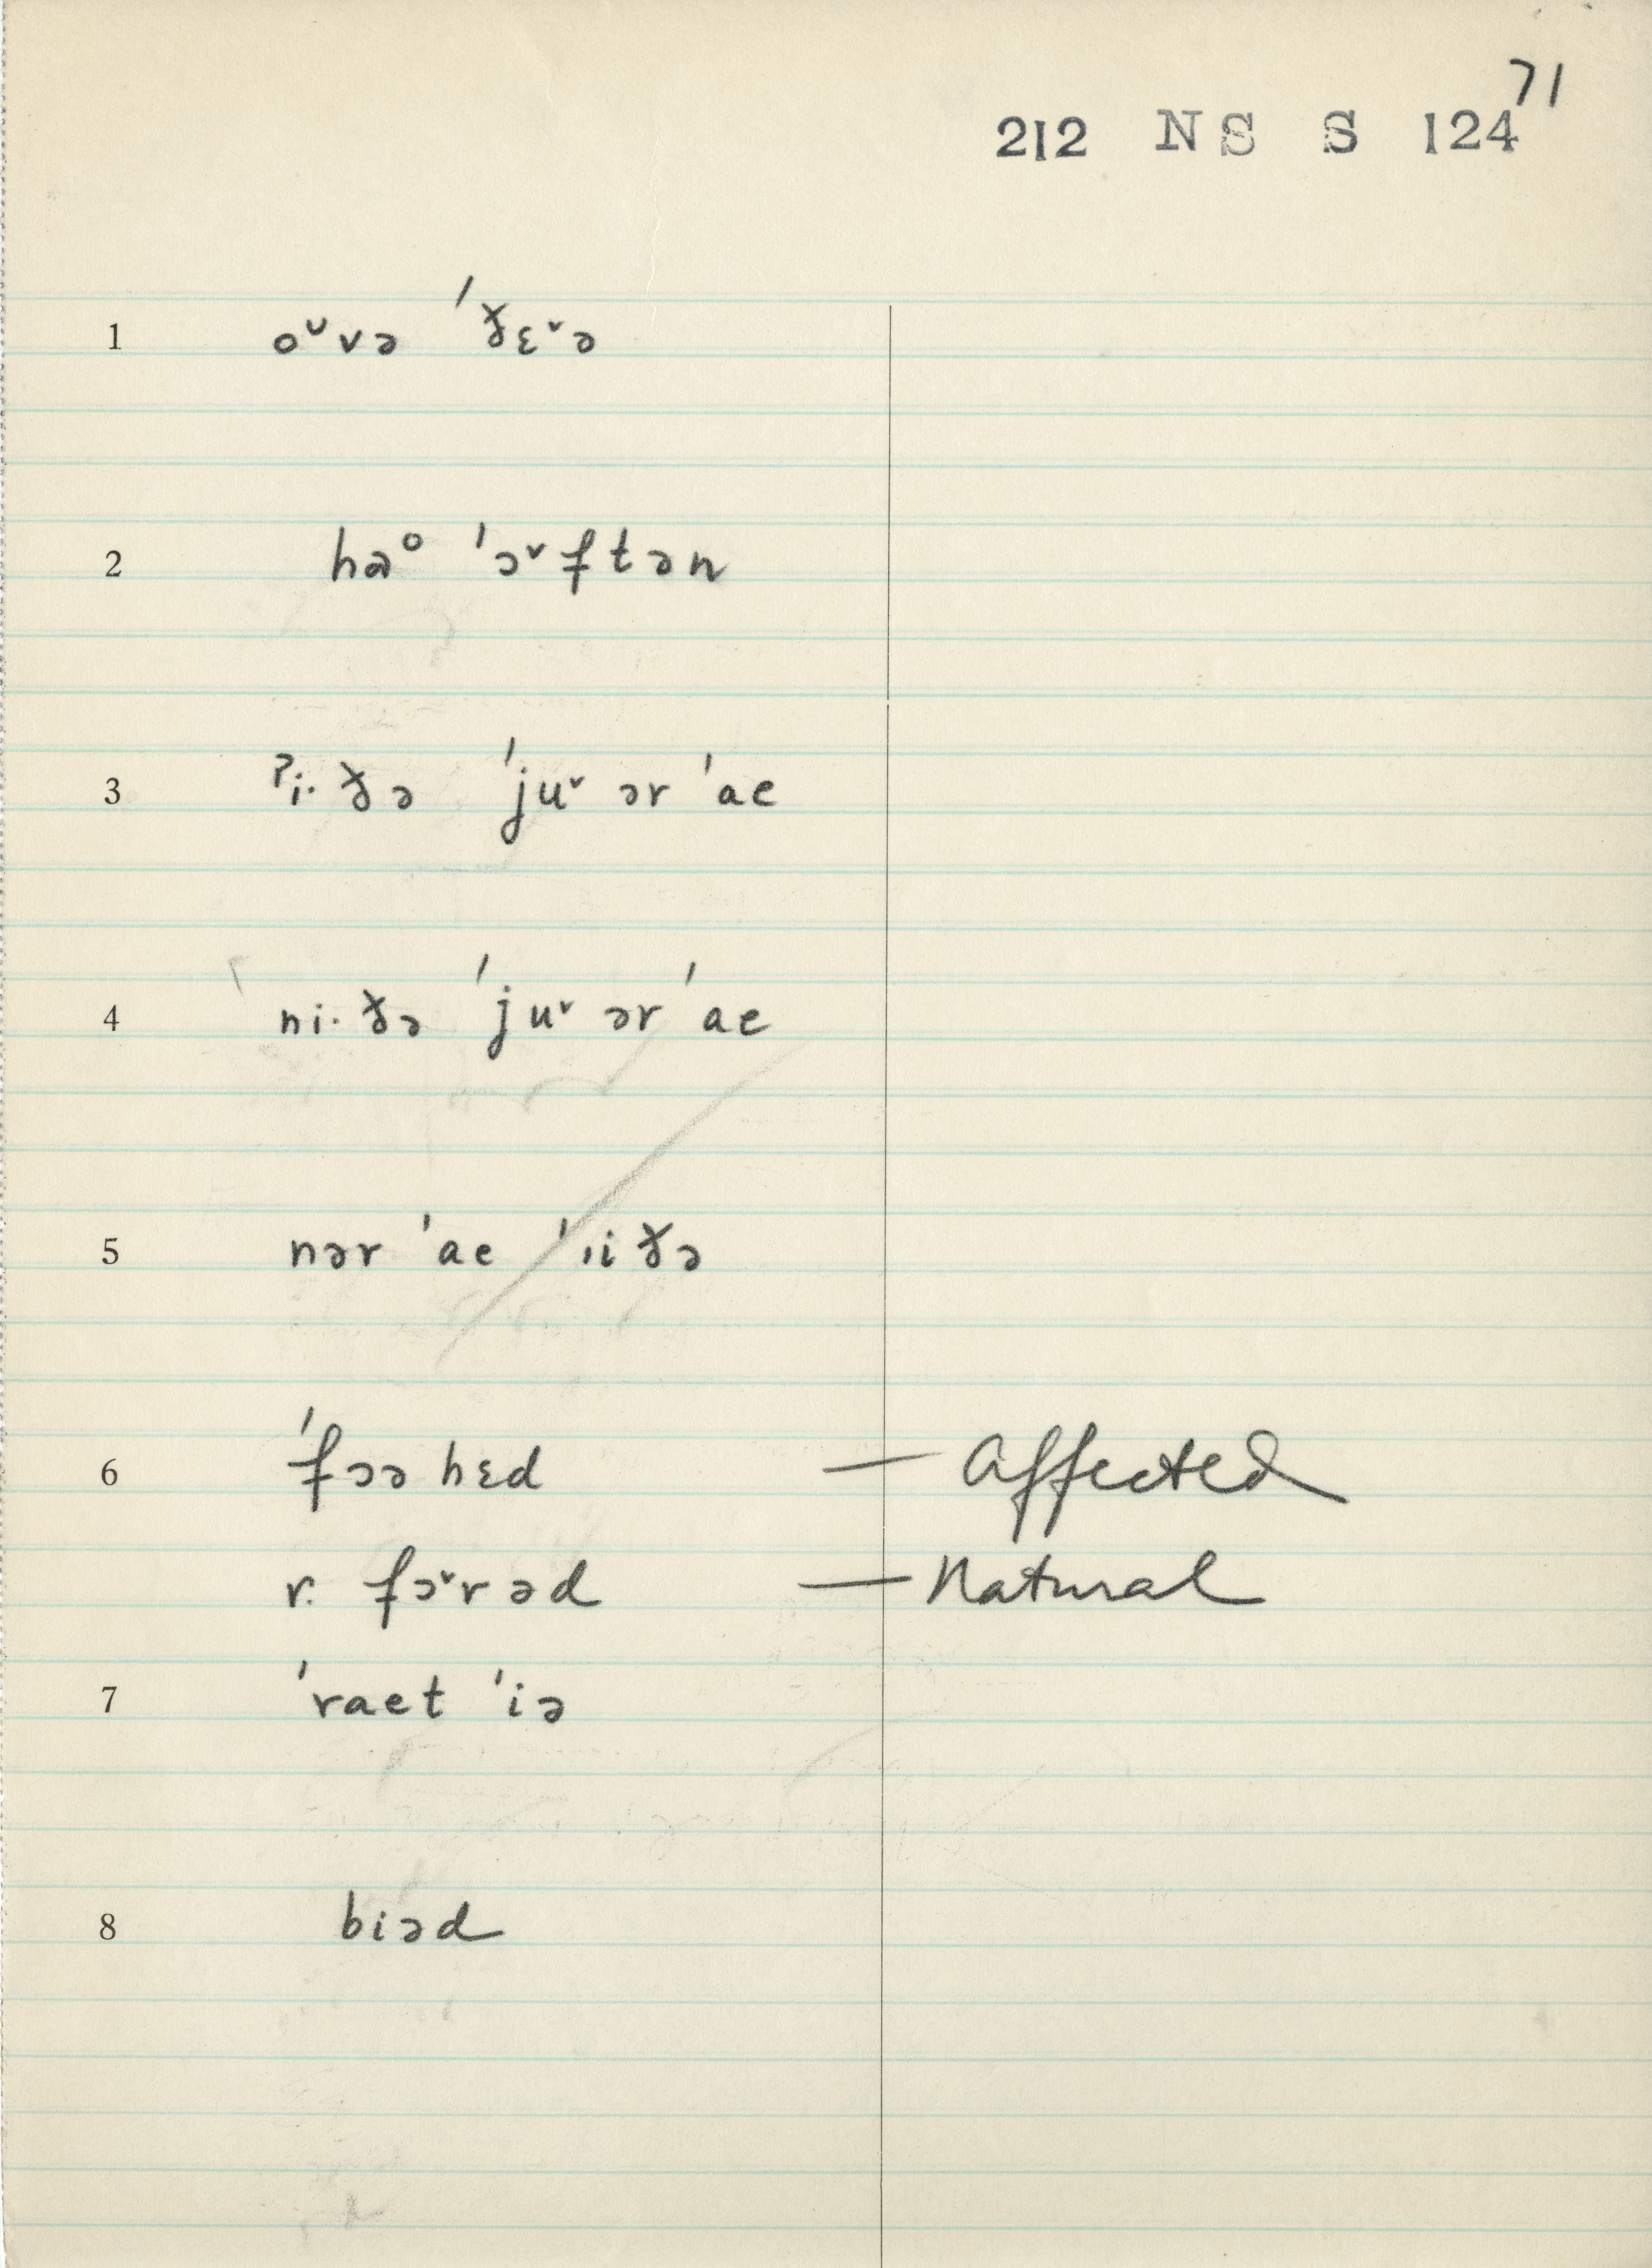 71
212 NS S 124
1 oᵕvə ˈðɛ˅ə
2 hɑᵒ ˈɔ˅ftən
3 ˀi· ðə ˈju˅ ər ˈae
4 ni· ðə ˈju˅ ər ˈae
5 nər ˈae ˈıi ðə
6 ˈfɔə hɛd — Affected
r. fɔ˅rəd — Natural
7 ˈraet ˈiə
8 biəd